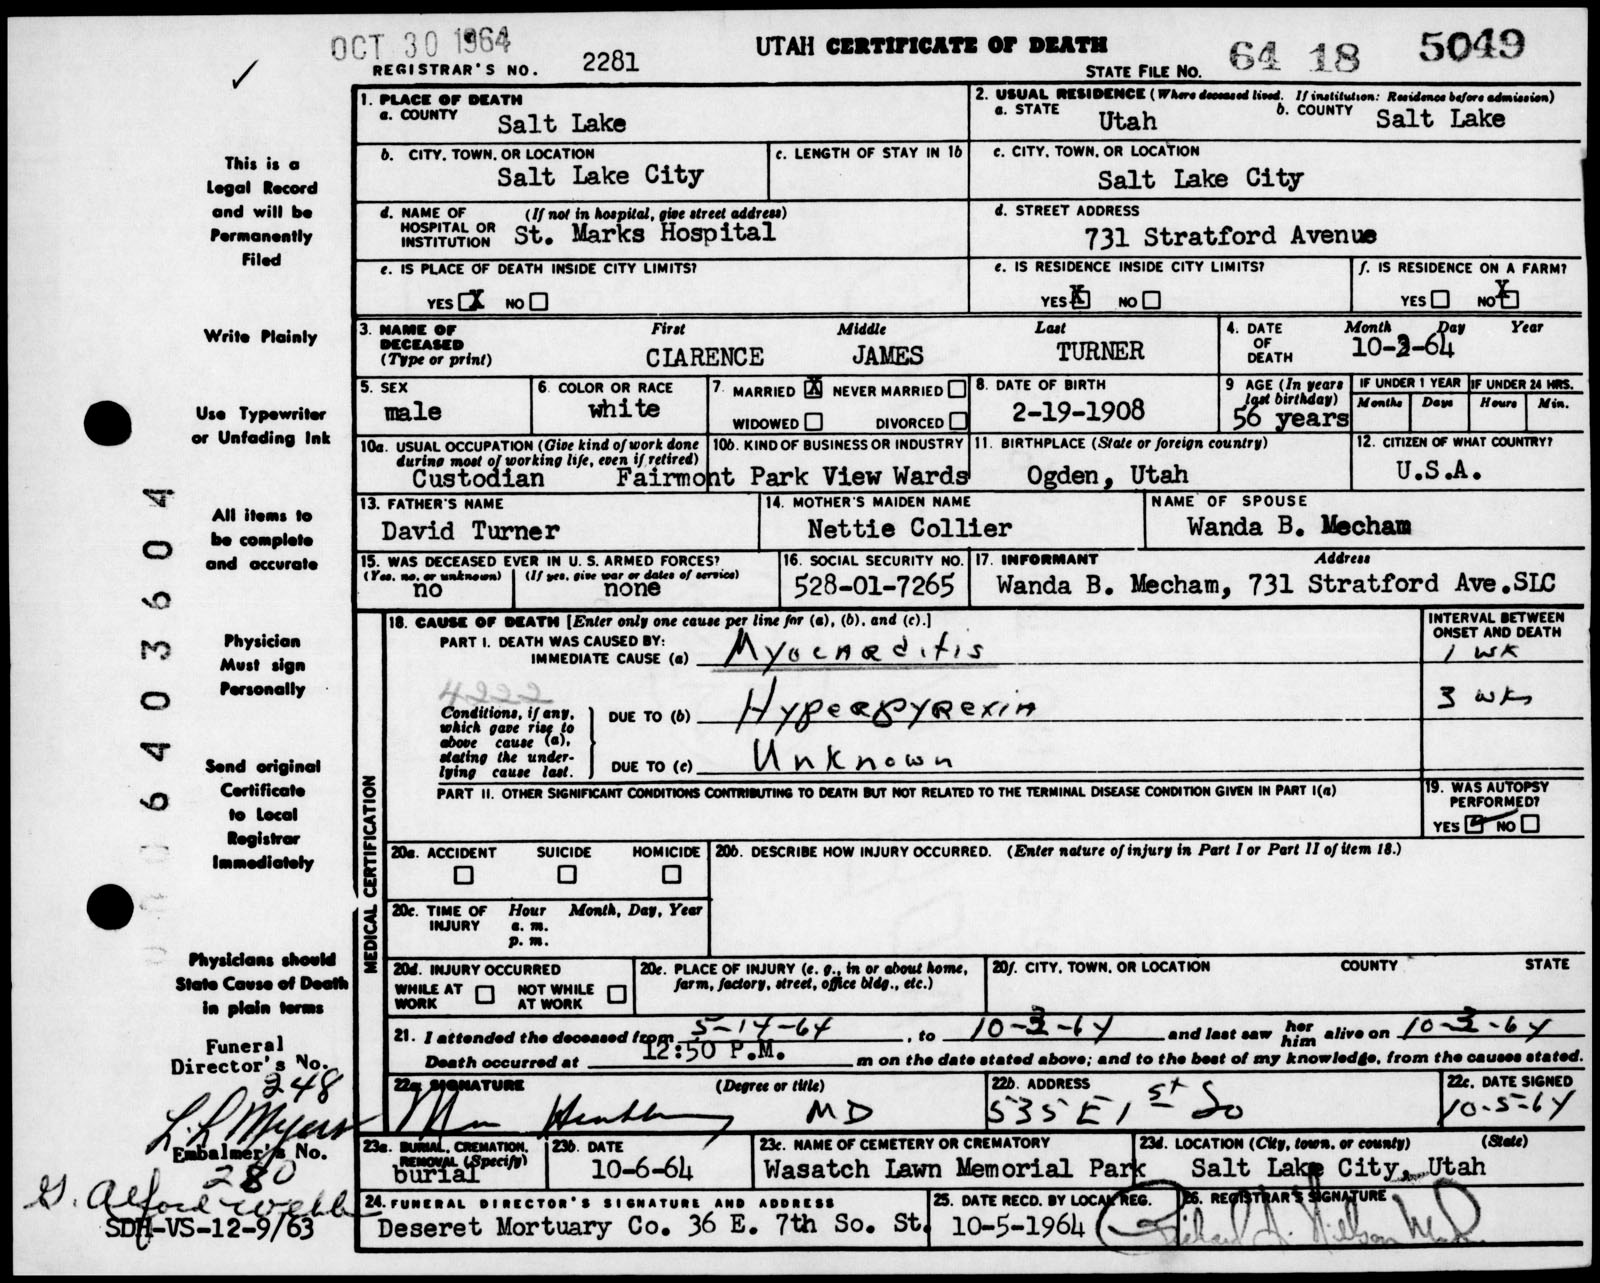 OCT 30 1964
REGISTRAR'S NO. 2281
UTAH CERTIFICATE OF DEATH
STATE FILE NO. 64 18 5049
✓
This is a
Legal Record
and will be
Permanently
Filed
Write Plainly
Use Typewriter
or Unfading Ink
All items to
be complete
and accurate
Physician
Must sign
Personally
Send original
Certificate
to Local
Registrar
Immediately
Physicians should
State Cause of Death
in plain terms
Funeral
Director's No.
248
L. L. Myers
Embalmer's No.
280
G. Alford Webb
SDH-VS-12-9/63
6403604
1. PLACE OF DEATH
a. COUNTY Salt Lake
2. USUAL RESIDENCE (Where deceased lived. If institution: Residence before admission)
a. STATE Utah b. COUNTY Salt Lake
b. CITY, TOWN, OR LOCATION
Salt Lake City
c. LENGTH OF STAY IN 1b
c. CITY, TOWN, OR LOCATION
Salt Lake City
d. NAME OF HOSPITAL OR INSTITUTION (If not in hospital, give street address)
St. Marks Hospital
d. STREET ADDRESS
731 Stratford Avenue
e. IS PLACE OF DEATH INSIDE CITY LIMITS?
YES X NO
e. IS RESIDENCE INSIDE CITY LIMITS?
YES X NO
f. IS RESIDENCE ON A FARM?
YES NO X
3. NAME OF DECEASED (Type or print)
First Middle Last
ClARENCE JAMES TURNER
4. DATE OF DEATH
Month Day Year
10-3-64
5. SEX
male
6. COLOR OR RACE
white
7. MARRIED X NEVER MARRIED
WIDOWED DIVORCED
8. DATE OF BIRTH
2-19-1908
9 AGE (In years last birthday)
56 years
IF UNDER 1 YEAR IF UNDER 24 HRS.
Months Days Hours Min.
10a. USUAL OCCUPATION (Give kind of work done during most of working life, even if retired)
Custodian
10b. KIND OF BUSINESS OR INDUSTRY
Fairmont Park View Wards
11. BIRTHPLACE (State or foreign country)
Ogden, Utah
12. CITIZEN OF WHAT COUNTRY?
U.S.A.
13. FATHER'S NAME
David Turner
14. MOTHER'S MAIDEN NAME
Nettie Collier
NAME OF SPOUSE
Wanda B. Mecham
15. WAS DECEASED EVER IN U. S. ARMED FORCES?
(Yes, no, or unknown) (If yes, give war or dates of service)
no none
16. SOCIAL SECURITY NO.
528-01-7265
17. INFORMANT Address
Wanda B. Mecham, 731 Stratford Ave.SLC
MEDICAL CERTIFICATION
18. CAUSE OF DEATH [Enter only one cause per line for (a), (b), and (c).]
PART I. DEATH WAS CAUSED BY:
IMMEDIATE CAUSE (a) Myocarditis
INTERVAL BETWEEN ONSET AND DEATH
1 wk
4222
Conditions, if any, which gave rise to above cause (a), stating the underlying cause last.
DUE TO (b) Hyperpyrexia
3 wks
DUE TO (c) Unknown
PART II. OTHER SIGNIFICANT CONDITIONS CONTRIBUTING TO DEATH BUT NOT RELATED TO THE TERMINAL DISEASE CONDITION GIVEN IN PART I(a)
19. WAS AUTOPSY PERFORMED?
YES ✓ NO
20a. ACCIDENT SUICIDE HOMICIDE
20b. DESCRIBE HOW INJURY OCCURRED. (Enter nature of injury in Part I or Part II of item 18.)
20c. TIME OF INJURY Hour Month, Day, Year
a. m.
p. m.
20d. INJURY OCCURRED
WHILE AT WORK NOT WHILE AT WORK
20e. PLACE OF INJURY (e. g., in or about home, farm, factory, street, office bldg., etc.)
20f. CITY, TOWN, OR LOCATION COUNTY STATE
21. I attended the deceased from 5-14-64, to 10-3-64 and last saw her him alive on 10-3-64
Death occurred at 12:50 P.M. m on the date stated above; and to the best of my knowledge, from the causes stated.
22a. SIGNATURE (Degree or title)
MD
22b. ADDRESS
535 E 1st So
22c. DATE SIGNED
10-5-64
23a. BURIAL, CREMATION, REMOVAL (Specify)
burial
23b. DATE
10-6-64
23c. NAME OF CEMETERY OR CREMATORY
Wasatch Lawn Memorial Park
23d. LOCATION (City, town, or county) (State)
Salt Lake City, Utah
24. FUNERAL DIRECTOR'S SIGNATURE AND ADDRESS
Deseret Mortuary Co. 36 E. 7th So. St.
25. DATE RECD. BY LOCAL REG.
10-5-1964
26. REGISTRAR'S SIGNATURE